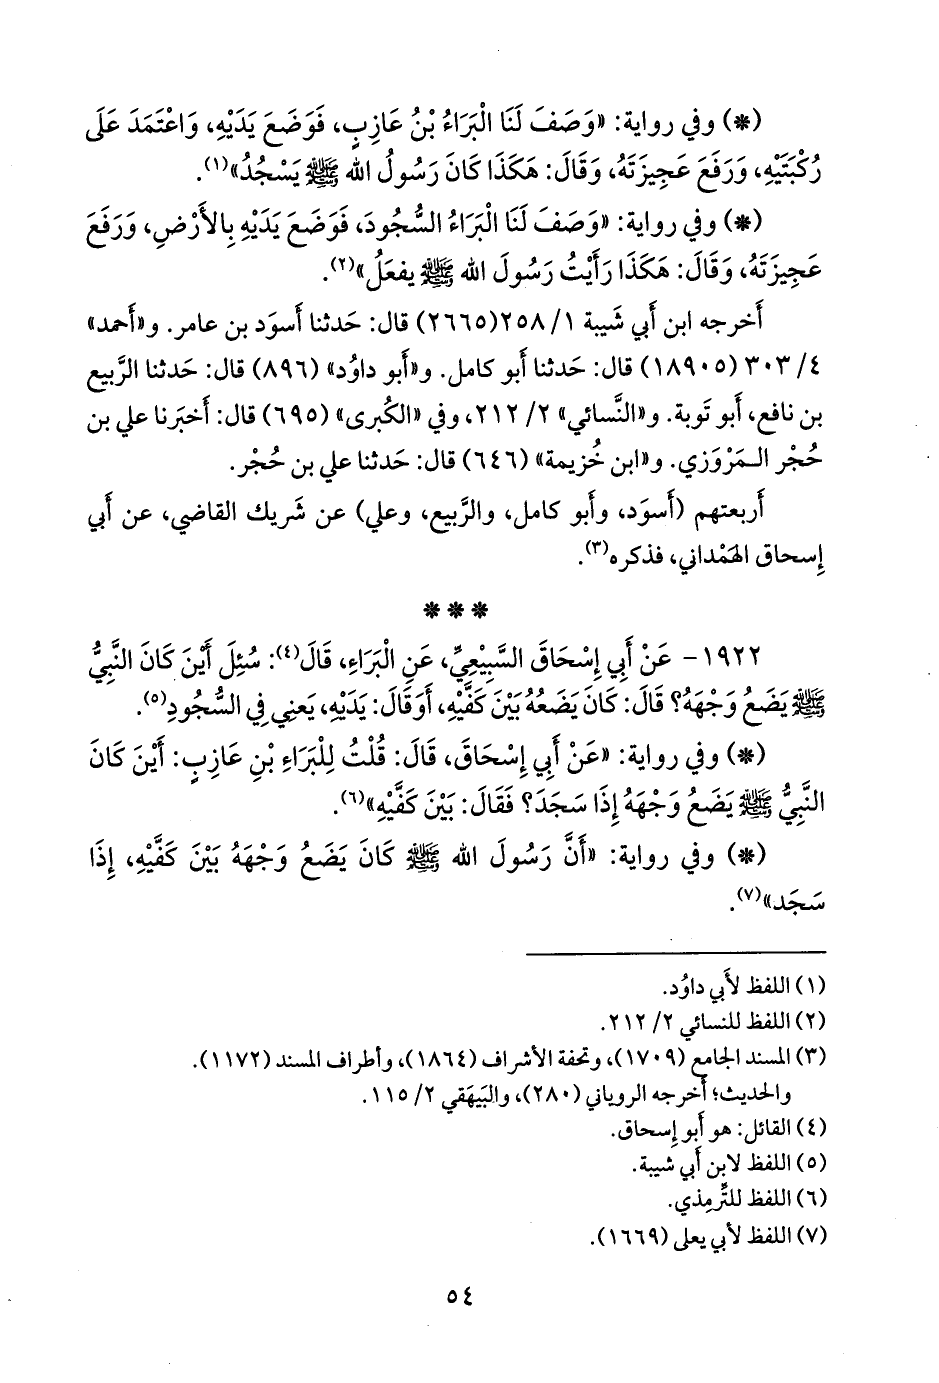 (*) وفي رواية: «وَصَفَ لَنَا الْبَرَاءُ بْنُ عَازِبٍ، فَوَضَعَ يَدَيْهِ، وَاعْتَمَدَ عَلَى
رُكْبَتَيْهِ، وَرَفَعَ عَجِيزَتَهُ، وَقَالَ: هَكَذَا كَانَ رَسُولُ الله ﷺ يَسْجُدُ»(١).
(*) وفي رواية: «وَصَفَ لَنَا الْبَرَاءُ السُّجُودَ، فَوَضَعَ يَدَيْهِ بِالأَرْضِ، وَرَفَعَ
عَجِيزَتَهُ، وَقَالَ: هَكَذَا رَأَيْتُ رَسُولَ الله ﷺ يفعَلُ»(٢).
أَخرجه ابن أَبي شَيبة ١/ ٢٥٨(٢٦٦٥) قال: حَدثنا أَسوَد بن عامر. و«أَحمد»
٤/ ٣٠٣ (١٨٩٠٥) قال: حَدثنا أَبو كامل. و«أَبو داوُد» (٨٩٦) قال: حَدثنا الرَّبيع
بن نافع، أَبو تَوبة. و«النَّسائي» ٢/ ٢١٢، وفي «الكُبرى» (٦٩٥) قال: أَخبَرنا علي بن
حُجْر الـمَرْوَزي. و«ابن خُزيمة» (٦٤٦) قال: حَدثنا علي بن حُجْر.
أَربعتهم (أَسوَد، وأَبو كامل، والرَّبيع، وعلي) عن شَريك القاضي، عن أَبي
إِسحاق الهَمْداني، فذكره(٣).
***
١٩٢٢- عَنْ أَبِي إِسْحَاقَ السَّبِيْعِيِّ، عَنِ الْبَرَاءِ، قَالَ(٤): سُئِلَ أَيْنَ كَانَ النَّبِيُّ
ﷺ يَضَعُ وَجْهَهُ؟ قَالَ: كَانَ يَضَعُهُ بَيْنَ كَفَّيْهِ، أَوقَالَ: يَدَيْهِ، يَعنِي فِي السُّجُودِ(٥).
(*) وفي رواية: «عَنْ أَبِي إِسْحَاقَ، قَالَ: قُلْتُ لِلْبَرَاءِ بْنِ عَازِبٍ: أَيْنَ كَانَ
النَّبِيُّ ﷺ يَضَعُ وَجْهَهُ إِذَا سَجَدَ؟ فَقَالَ: بَيْنَ كَفَّيْهِ»(٦).
(*) وفي رواية: «أَنَّ رَسُولَ الله ﷺ كَانَ يَضَعُ وَجْهَهُ بَيْنَ كَفَّيْهِ، إِذَا
سَجَد»(٧).
(١) اللفظ لأَبي داوُد.
(٢) اللفظ للنسائي ٢/ ٢١٢.
(٣) المسند الجامع (١٧٠٩)، وتحفة الأشراف (١٨٦٤)، وأطراف المسند (١١٧٢).
والحديث؛ أخرجه الروياني (٢٨٠)، والبَيهَقي ٢/ ١١٥.
(٤) القائل: هو أَبو إِسحاق.
(٥) اللفظ لابن أَبي شيبة.
(٦) اللفظ للتِّرمِذي.
(٧) اللفظ لأَبي يعلى (١٦٦٩).
٥٤